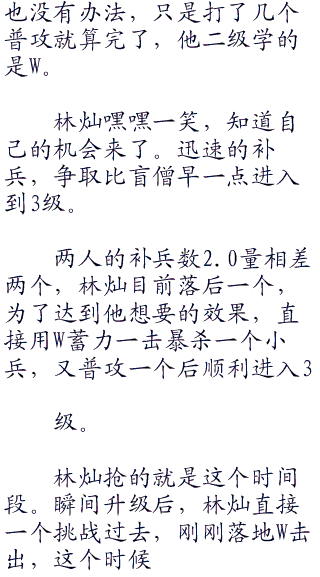 也没有办法，只是打了几个
普攻就算完了，他二级学的
是W。
林灿嘿嘿一笑，知道自
己的机会来了。迅速的补
兵，争取比盲僧早一点进入
到3级。
两人的补兵数2.0量相差
两个，林灿目前落后一个，
为了达到他想要的效果，直
接用W蓄力一击暴杀一个小
兵，又普攻一个后顺利进入3
级。
林灿抢的就是这个时间
段。瞬间升级后，林灿直接
一个挑战过去，刚刚落地W击
出，这个时候